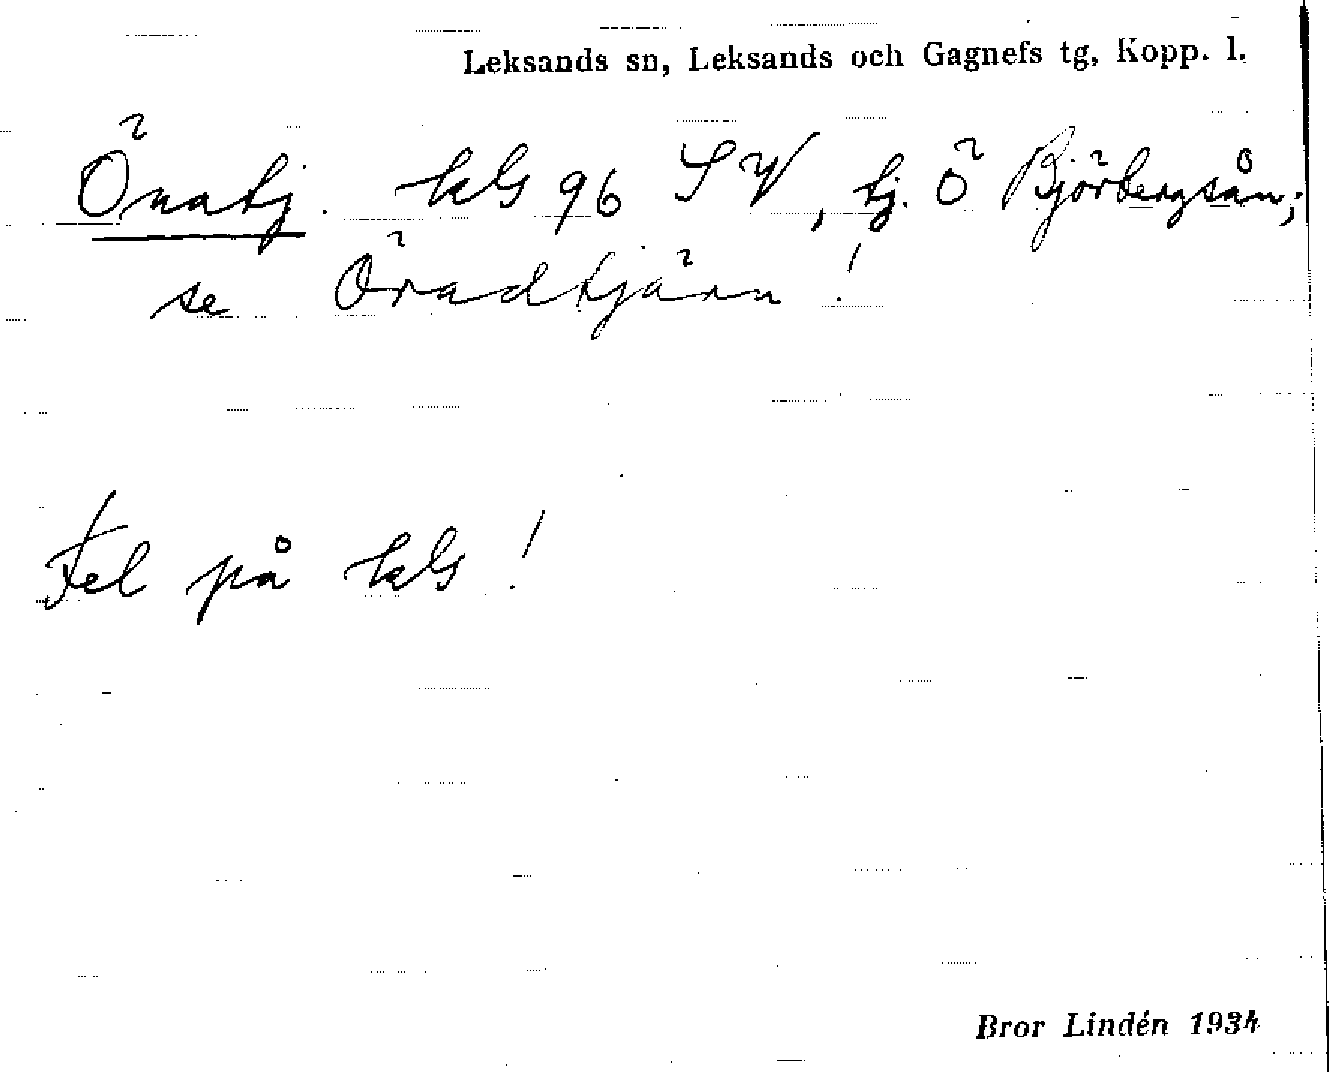 Leksands sn, Leksands och Gagnefs tg, Kopp. l.
Önatj. kbl 96 SV, tj. Ö Björbergsån;
se Öradtjärn!
Fel på kbl!
Bror Lindén 1934